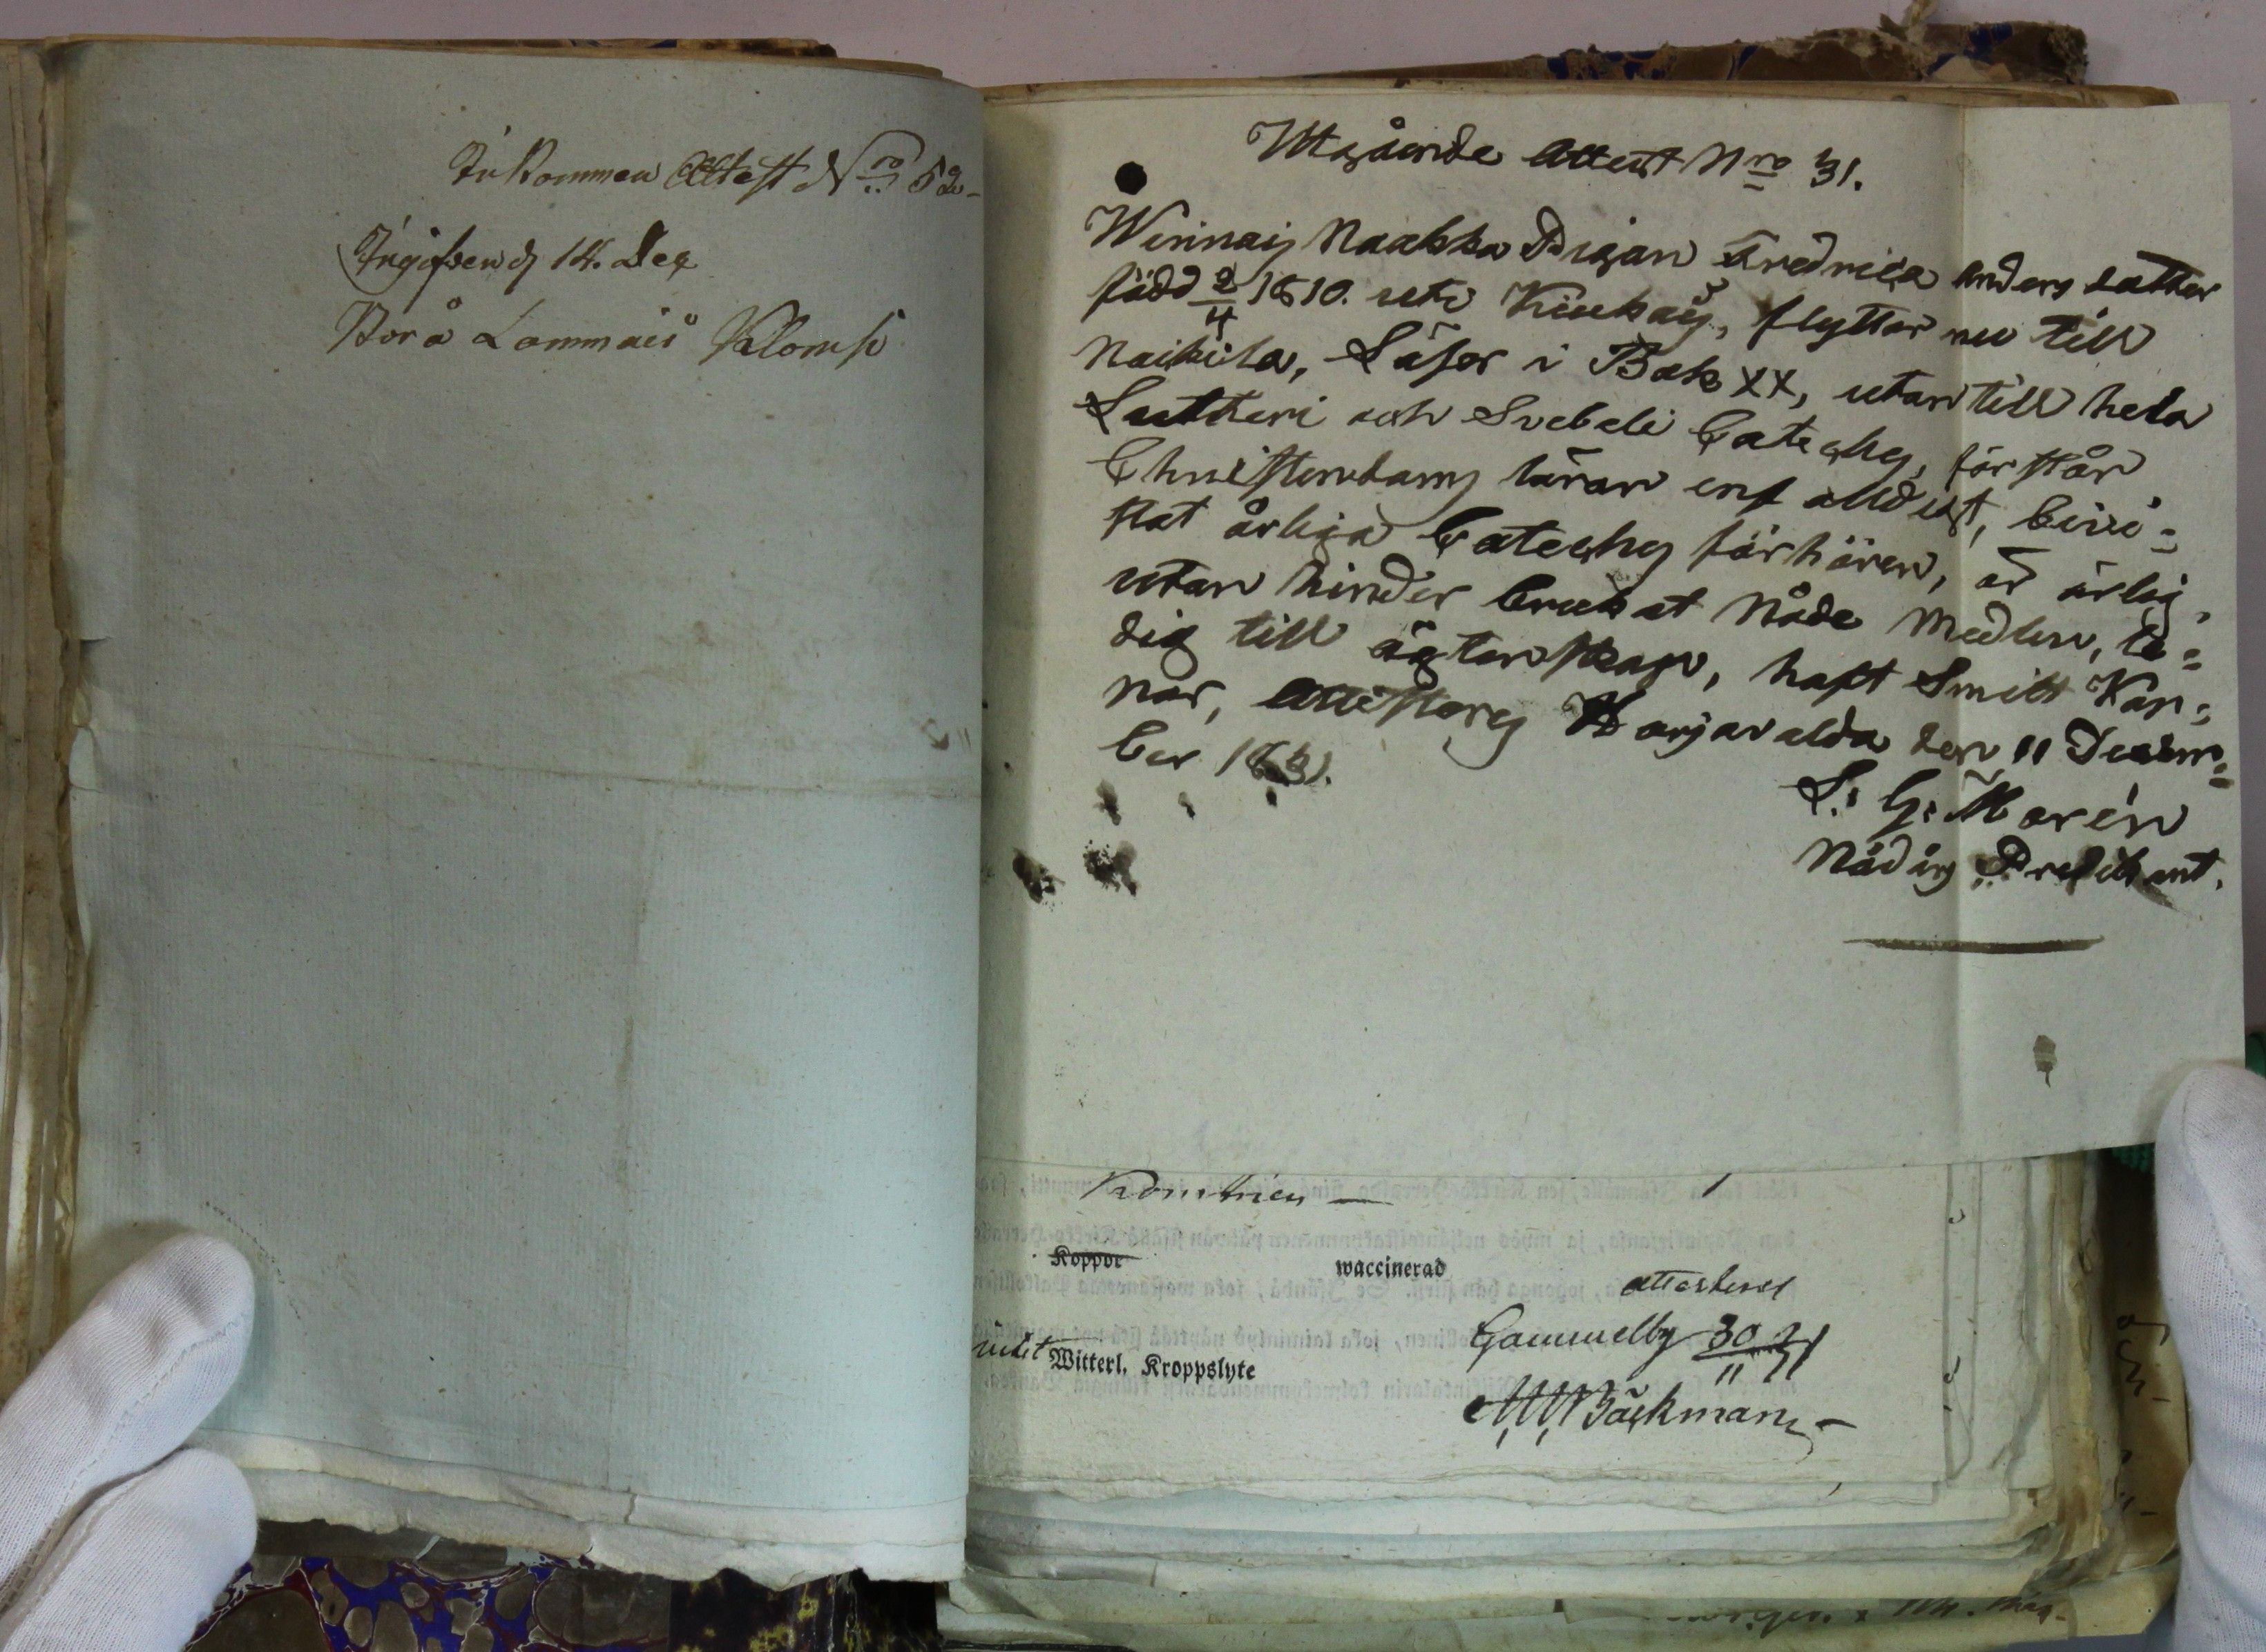 Inkommen Attest Nro 52
Ingifven d 14. Dec
Borå Lammais Klomsi
Utgående Attest Nro 31.
Winnais Naakka Pigan Fredrica Anders dotter
född 2/4 1810. uti Kiukais, flyttar nu till
Naikila, Läser i Bok XX, utan till hela
Lutheri och Svebeli Cateches, förstår
Christendoms läran enfaldigt, bivi=
stat årliga Cateches förhören, är ärlig,
utan hinder brukat Nåde Medlen, le=
dig till ägtenskap, haft Smitt Kop=
por, attesteras Harjavalda den 11 Decem=
ber 1831.
L: G: Morén
Nådårs Predikant.
Kommuen — 1
Koppor waccinerad
attesteras
Gammelby 30/11 31
vidit Witterl. Kroppslyte
M W Bäckman